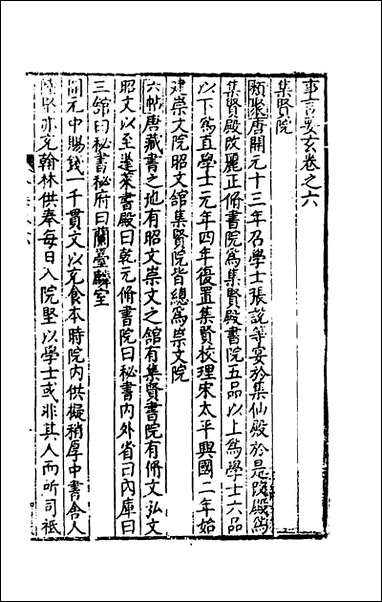 事言要玄卷之六
集賢院
類聚唐開元十三年召學士張說等宴於集仙殿於是改殿為
集賢殿改麗正脩書院為集賢殿書院五品以上為學士六品
以下為直學士元年四年復置集賢校理宋太平興國二年始
建崇文院昭文館集賢院皆總為崇文院
六帖唐藏書之地有昭文崇文之館有集賢書院有脩文弘文
昭文以至蓬萊書殿曰乾元脩書院曰秘書內外省曰內庫曰
三館曰秘書秘府曰蘭臺麟室
開元中賜錢一千貫文以充食本時院內供擬稍厚中書舍人
陸堅亦充翰林供奉每日入院堅以學士或非其人而所司祗